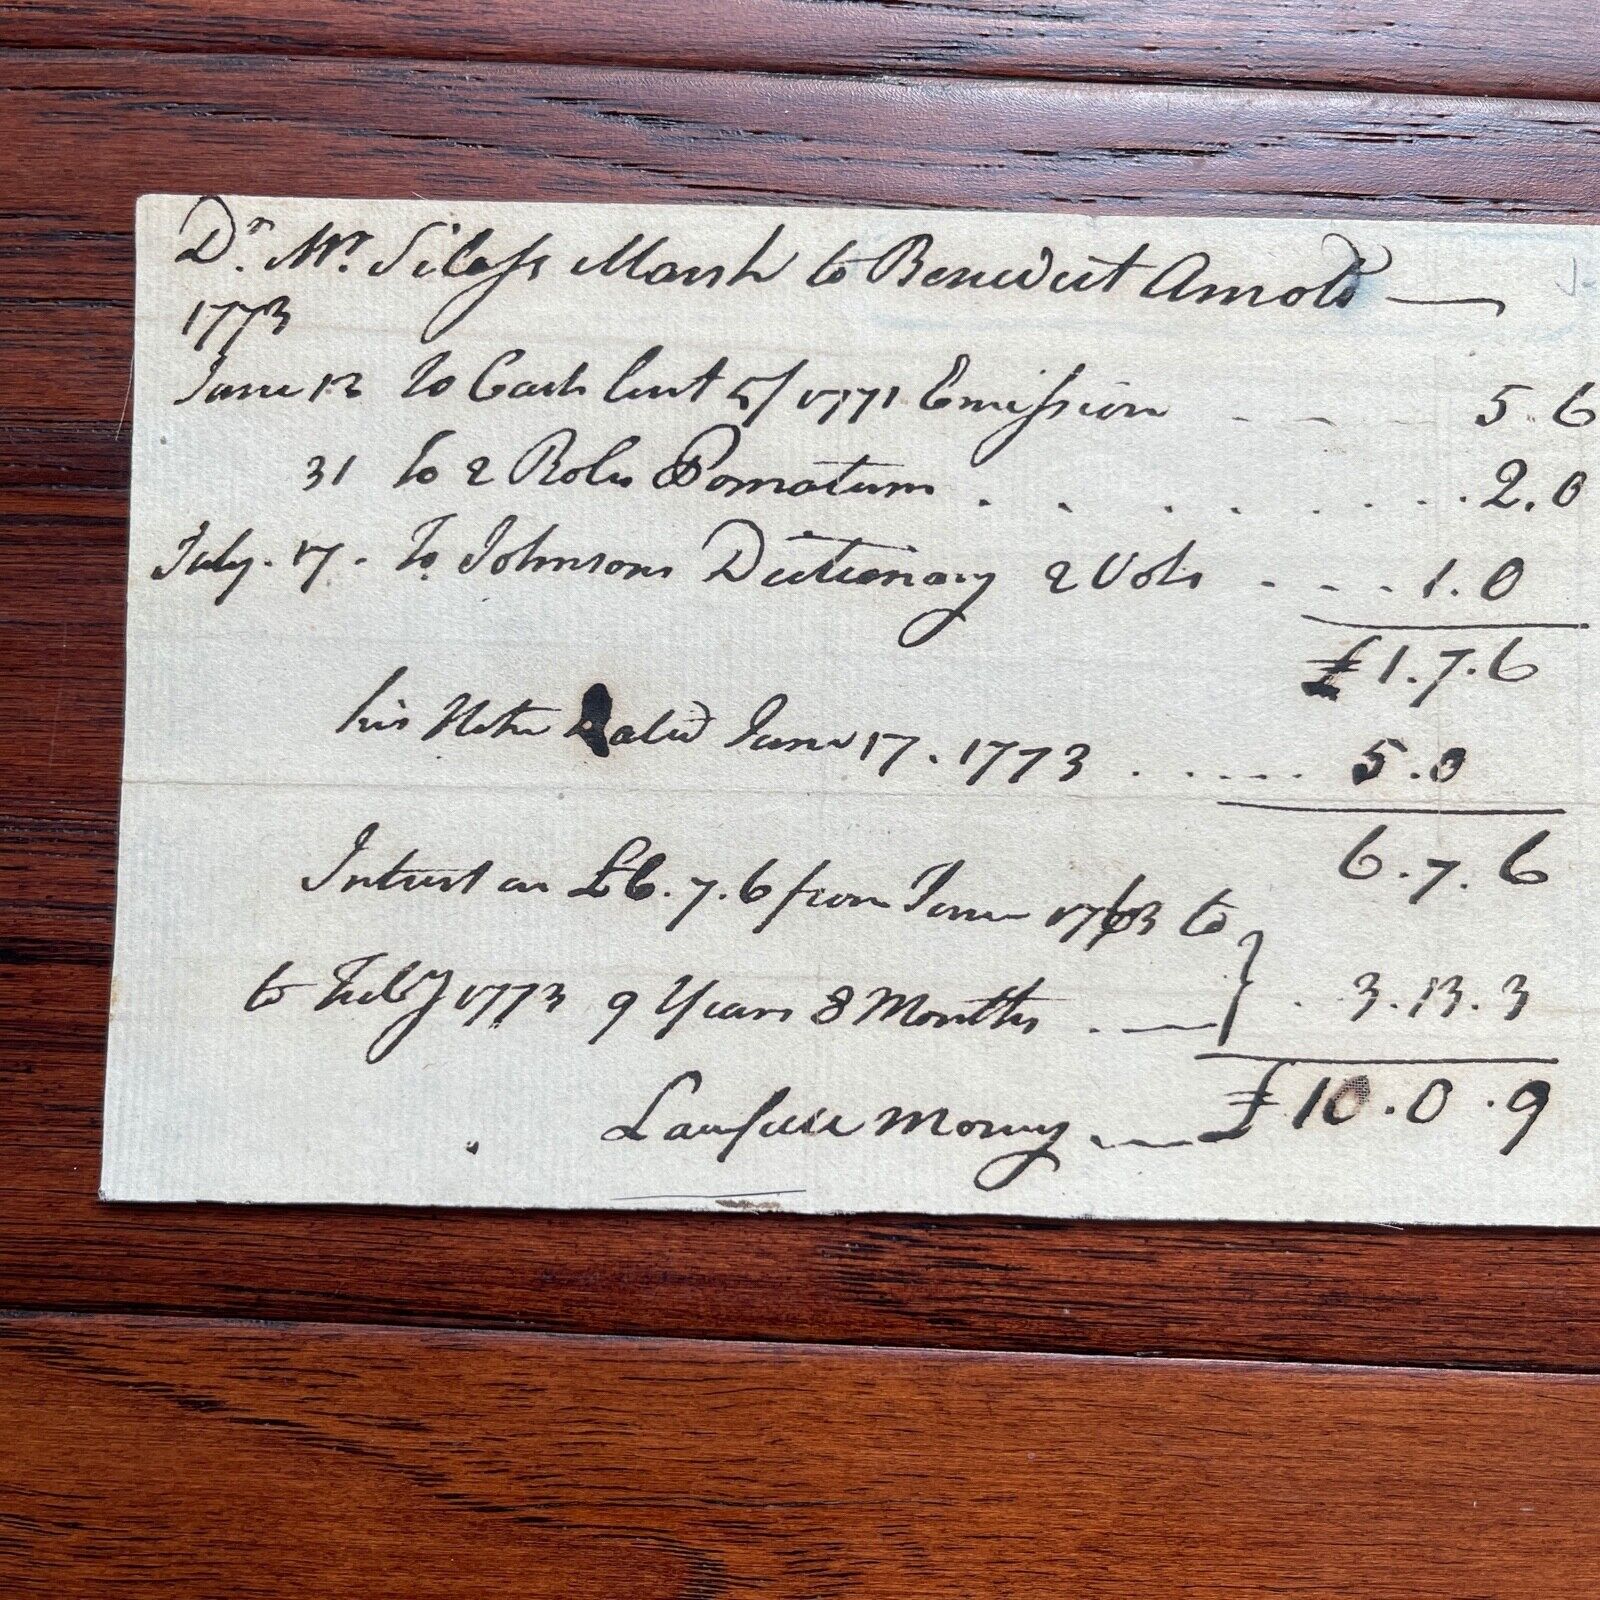 Dr. Mr. Silass Marsh to Benedict Arnold
1773
June 12 To Cash lent 5/ 1771 Emission - - - 5.6
31 To 2 Roles Pomatum . . . . . . . 2.0
July. 17. To Johnsons Dictionary 2 Vols - - - - 1.0
£1.7.6
his Note Dated June 17. 1773 . . . . . . 5.0
6.7.6
Interest on £6.7.6 from June 1763 to
to Feby 1773 9 Years 8 Months . — } . 3.13.3
Lawfull Money — £10.0.9